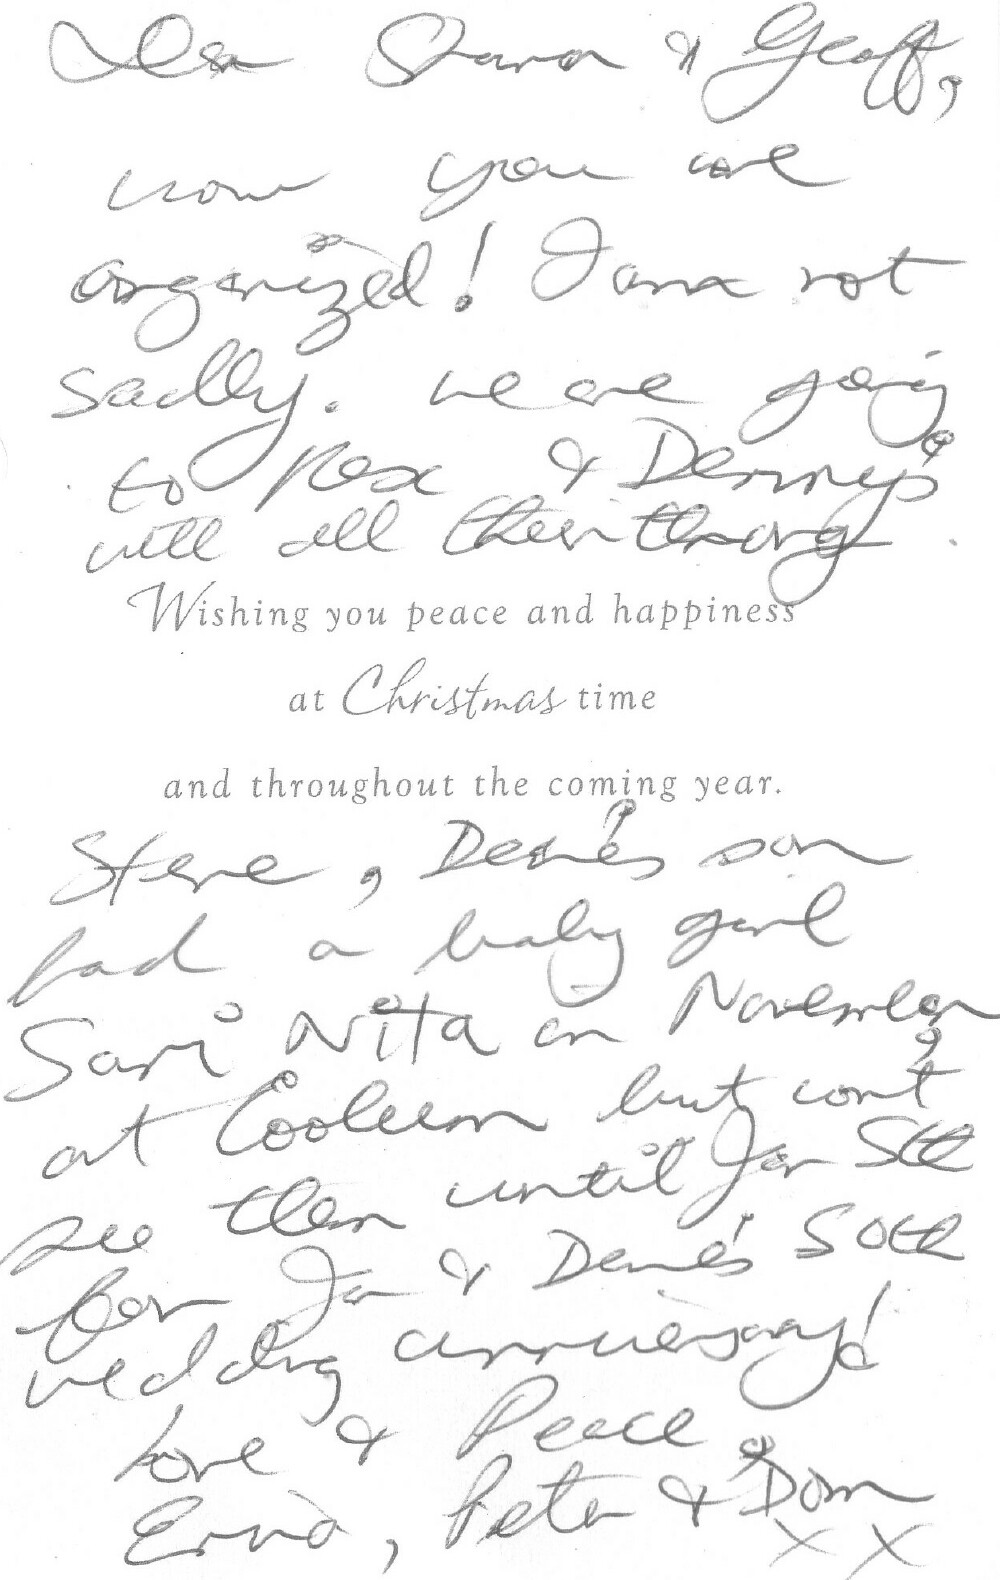 Dear Shana & Geoff,
now you are
organized! I am not
sadly. We are going
to Rex & Denny's
with all their throng.
Wishing you peace and happiness
at Christmas time
and throughout the coming year.
Steve, Denis's son
had a baby girl
Sari Nita on November,
at Coolum but won't
see them until Jan 5th
for Jan & Denis's 50th
wedding anniversary!
Love & Peace,
Erna, Peter & Dom
XX